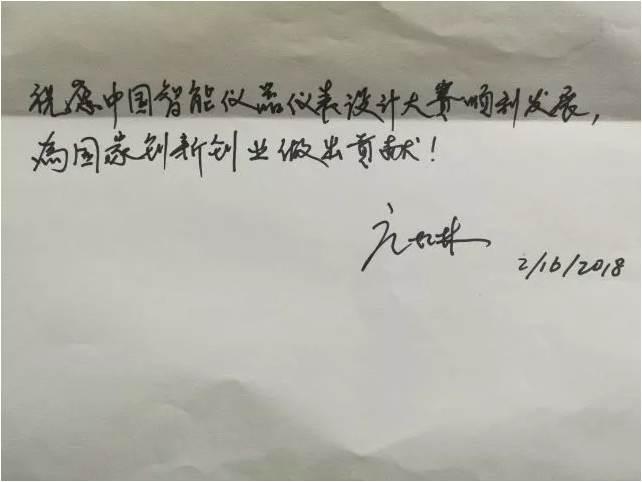 祝愿中国智能仪器仪表设计大赛顺利发展,
為国家创新创业做出贡献!
2/16/2018